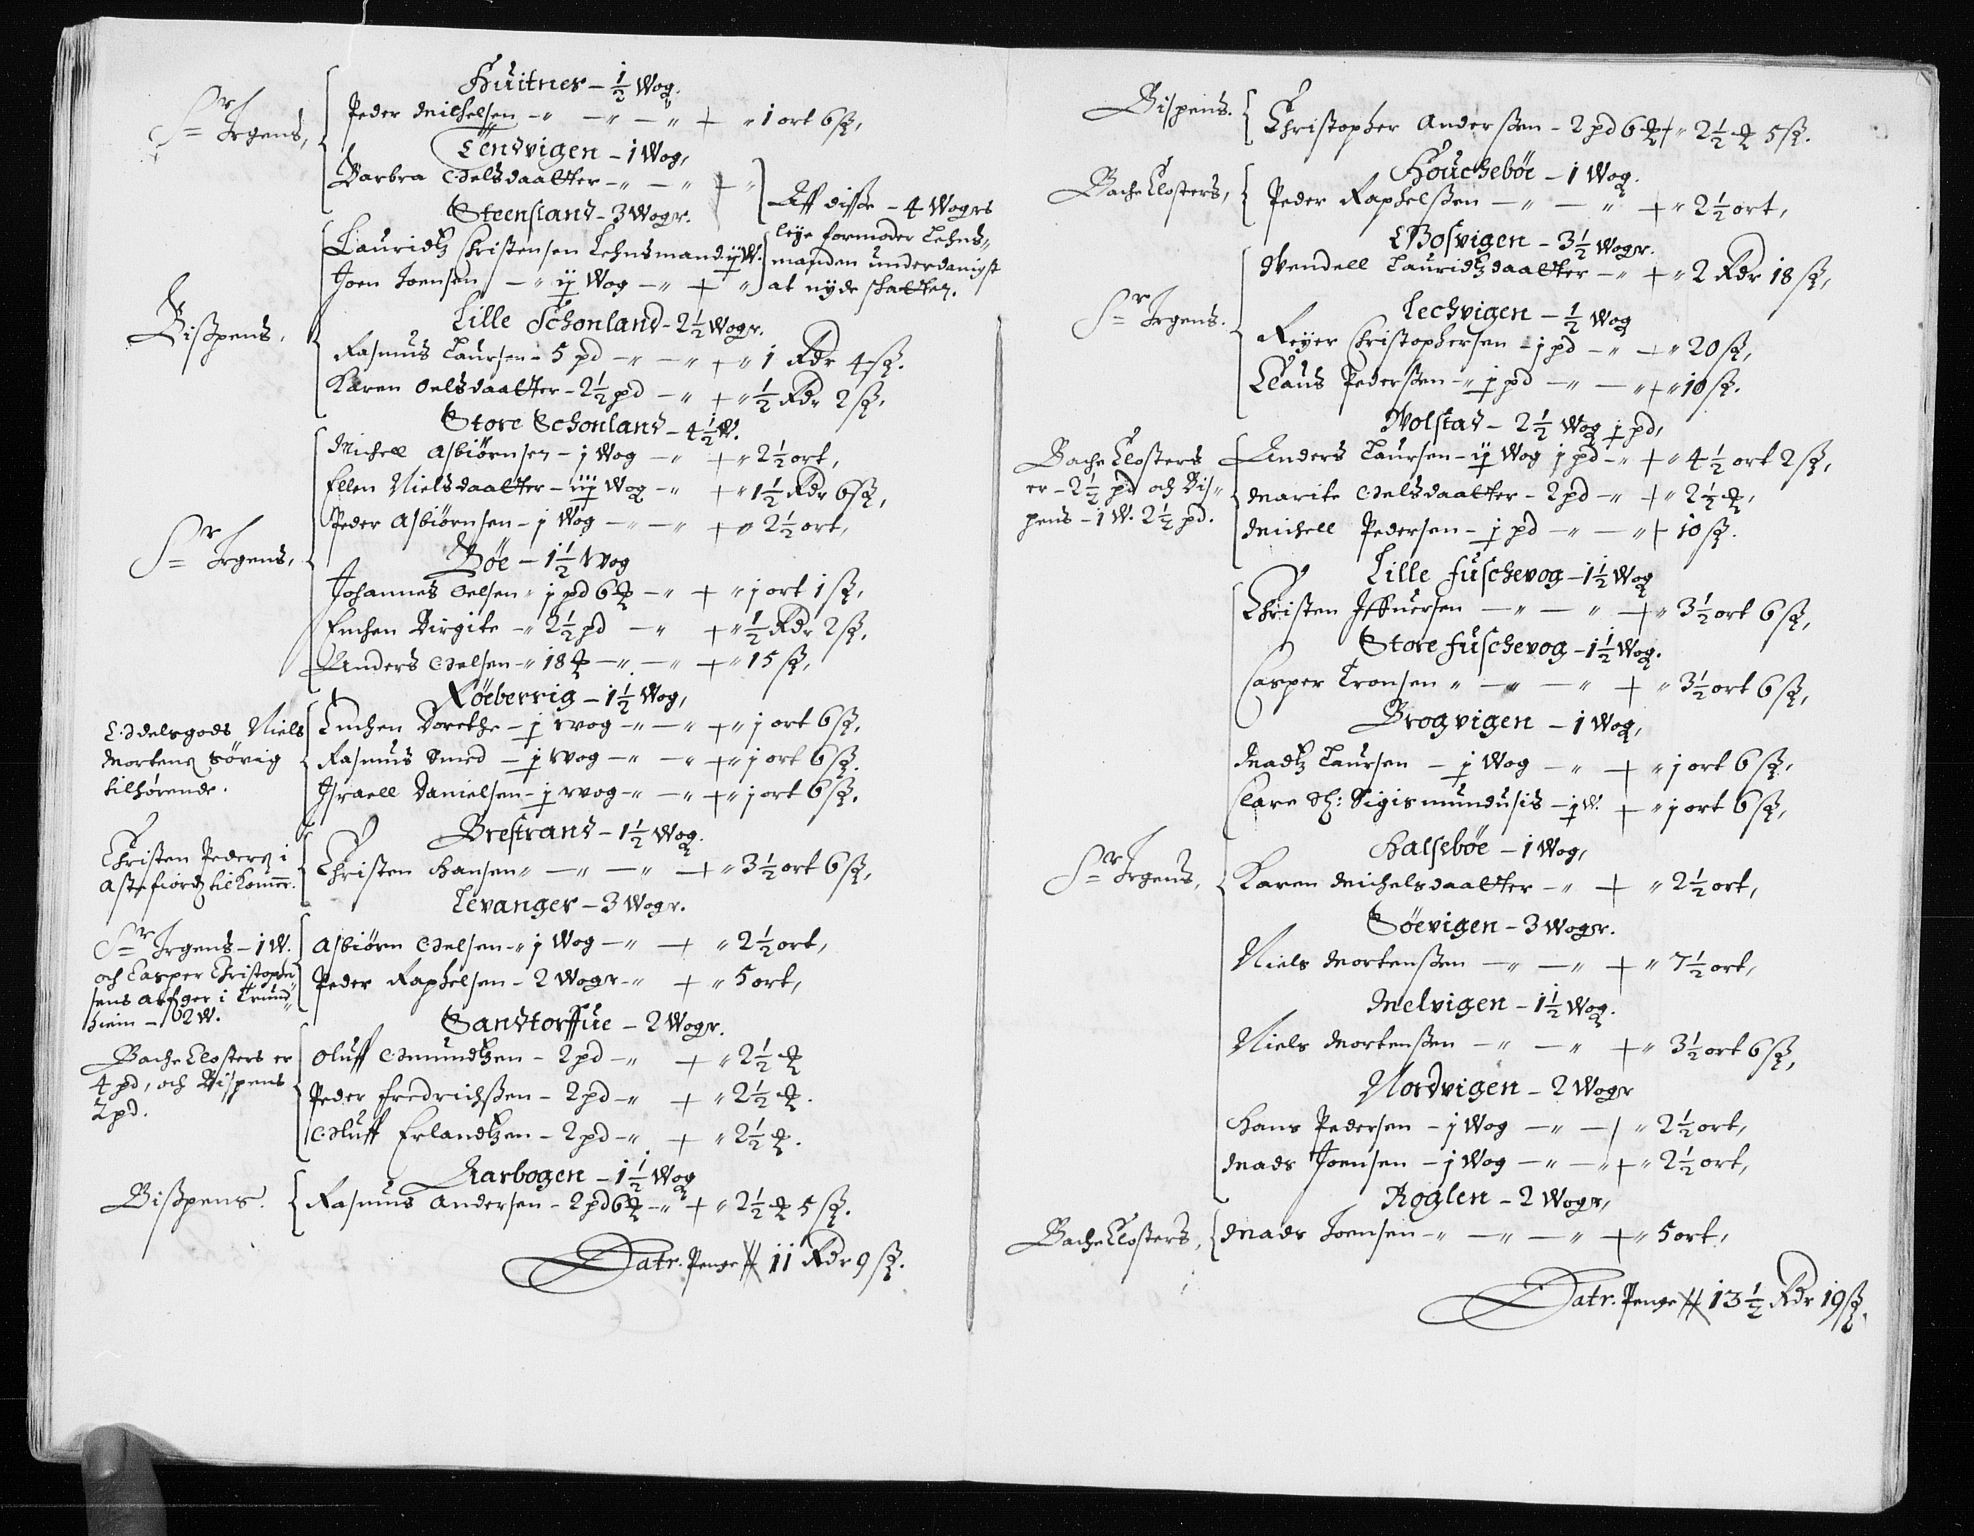 Huitnes - ½ Wog.
Sr Irgens, Peder Michelsen -„ -„ - „ + „ 1 ort 6 ß,
Tendvigen - 1 Wog,
Barbra Oelsdaatter -„ - „ + „
Steensland - 3 Wogr.
Lauridtz Christensen Lehnsmand ij W.
Joen Joensen - „ ij Wog -„ + „
Aff disse - 4 Wogrs
leye formoder Lehns„
manden underdanigst
at nyde schatten.
Lille Schonland - 2½ Wogr.
Bispens, Rasmus Laursen - 5 pd -„ -„ + „ 1 Rdr 4 ß.
Karen Oelsdaatter - 2½ pd -„ + „ ½ Rdr 2 ß,
Store Schonland - 4½ W.
Michell Asbiørnsen - j Wog -„ + „ 2½ ort,
Ellen Nielsdaatter - iij Wog -„ + „ 1½ Rdr 6 ß,
Peder Asbiørnsen - j Wog -„ -„ + „ 2½ ort,
Sr Irgens,
Bøe - 1½ Wog
Johannes Oelsen „ j pd 6 ℔ -„ + „ j ort 1 ß,
Enchen Birgite -„ 2½ pd -„ + „ ½ Rdr 2 ß,
Anders Oelsen -„ 18 ℔ -„ -„ + „ 15 ß,
Røeberrig - 1½ Wog,
Odelsgods Niels
Mortens Søvig
tilhørende.
Enchen Dorethe - ½ Wog -„ -„ + „ j ort 6 ß,
Rasmus Smed - ½ Wog -„ -„ + „ j ort 6 ß.
Israell Danielsen - ½ Wog -„ -„ + „ j ort 6 ß.
Brestrand - 1½ Wog.
Christen Peders i
Astafiord tilkomer.
Christen Hansen „ -„ -„ + „ 3½ ort 6 ß,
Levanger - 3 Wogr.
Sr Irgens - 1 W.
och Casper Christopher
sens arfger i Trund„
hiem - 2 W.
Asbiørn Oelsen -„ j Wog -„ + „ 2½ ort,
Peder Raphelsen - 2 Wogr -„ + „ 5 ort,
Sandtorffue - 2 Wogr.
Bache Closters er
4 pd, och Bispens
2 pd.
Oluff Omundtzen - 2 pd -„ + „ 2½ ℔
Peder Fredrichssen - 2 pd -„ + „ 2½ ℔.
Oluff Erlandtzen - 2 pd -„ + „ 2½ ℔.
Aarbogen - 1½ Wog
Bispens. Rasmus Andersen - 2 pd 6 ℔ -„ + „ 2½ ℔ 5 ß.
Latr. Penge # 11 Rdr 9 ß.
Bispens. Christopher Anderssen - 2 pd 6 ℔ + „ 2½ ℔ 5 ß.
Houchebøe - 1 Wog.
Bache Closters, Peder Raphelssen -„ -„ + „ 2½ ort,
Bosvigen - 3½ Wogr.
Wendell Lauridtzdaatter -„ + „ 2 Rdr 18 ß,
Sr Irgens.
Lechvigen - ½ Wog
Reyer Christophersen - j pd -„ -+ „ 20 ß,
Claus Pederssen -„ ½ pd -„ -„ + „ 10 ß.
Wolstad - 2½ Wog ½ pd,
Bache Closters
er - 2½ pd och Bis„
pens - 1 W. 2½ pd.
Anders Laursen - ij Wog j pd -„ + „ 4½ ort 2 ß,
Marite Oelsdaatter - 2 pd -„ + „ 2½ ℔,
Michell Pedersen - ½ pd -„ -„ + 10 ß.
Lille Fuschevog - 1½ Wog
Christen Iffuersen -„ -„ + „ 3½ ort 6 ß,
Store Fuschevog - 1½ Wog.
Casper Tronsen „ -„ -„ + „ 3½ ort 6 ß,
Brogvigen - 1 Wog,
Madtz Laursen - ½ Wog -„ + „ j ort 6 ß,
Clare Sl: Sigismundusis - ½ W. + „ j ort 6 ß,
Halsebøe - 1 Wog,
Sr Irgens, Karen Michelsdaatter -„ + „ 2½ ort,
Søevigen - 3 Wogr.
Niels Mortenssen -„ -„ + „ 7½ ort,
Melvigen - 1½ Wog.
Niels Mortenssen -„ -„ + „ 3½ ort 6 ß,
Nordvigen - 2 Wogr
Hans Pedersen - j Wog -„ -+ „ 2½ ort,
Mads Joensen - j Wog -„ -„ + „ 2½ ort,
Roglen - 2 Wogr,
Bache Closters, Mads Joensen -„ -„ -„ + „ 5 ort,
Latr. Penge # 13½ Rdr 19 ß.